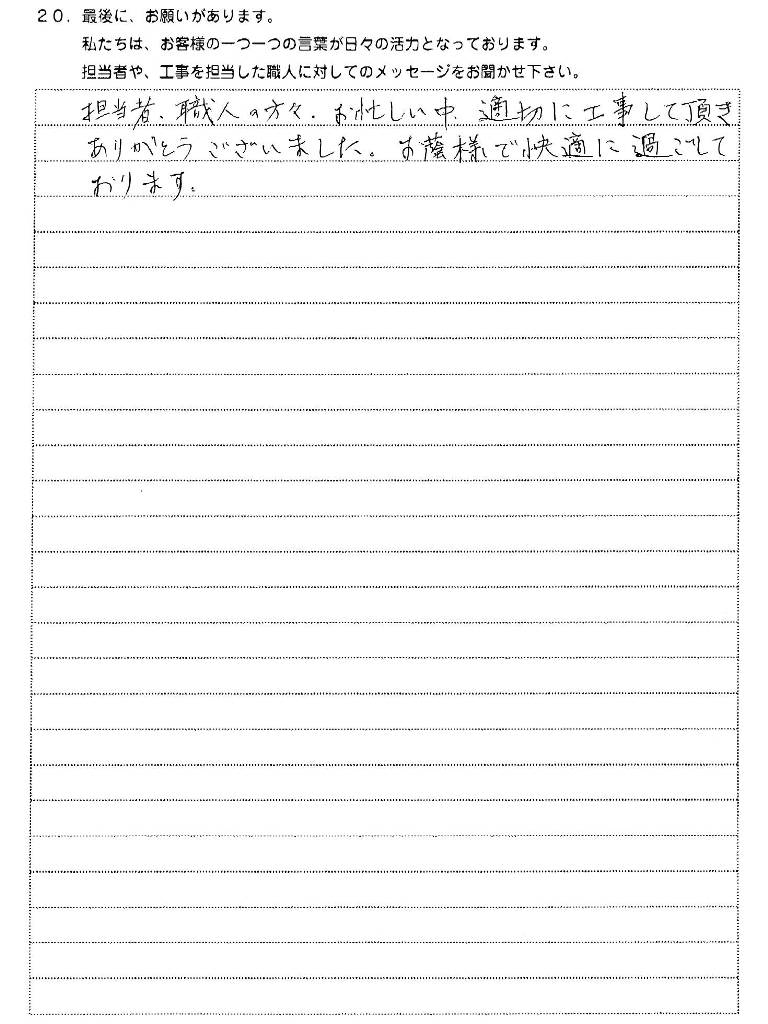 20. 最後に、お願いがあります。
私たちは、お客様の一つ一つの言葉が日々の活力となっております。
担当者や、工事を担当した職人に対してのメッセージをお聞かせ下さい。
担当者、職人の方々、お忙しい中、適切に工事して頂き
ありがとうございました。お蔭様で快適に過ごして
おります。